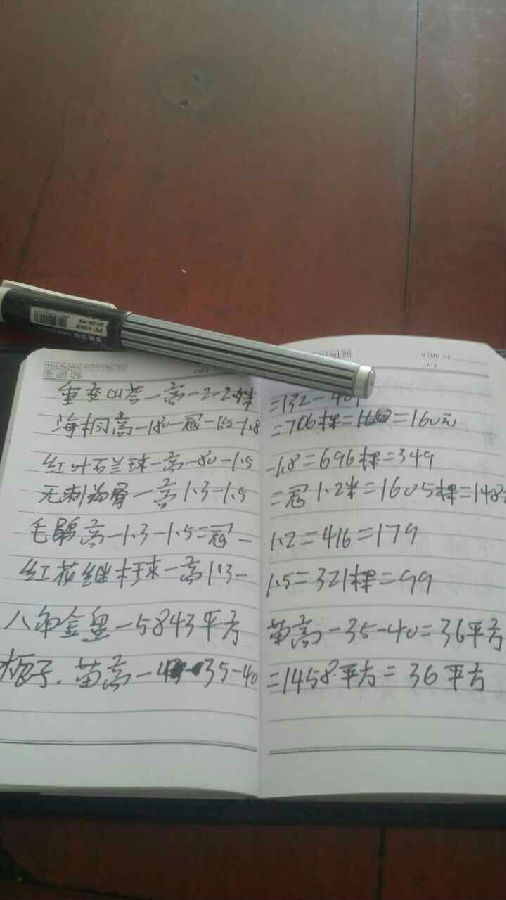 重庆山茶一高一2-2米=132-401
海桐高-180-冠-160-1.8=706棵=160=160元
红叶石兰球-高-80-1.5-1.8=696棵=349
无刺狗骨一高1.3-1.5=冠1.2米=1605棵=148
毛鹃高-1.3-1.5=冠-1.2=416=179
红花继木球一高1.3-1.5=321棵=99
八角金盘-5843平方 苗高-35-40=36平方
栀子.苗高-35-40=1458平方=36平方